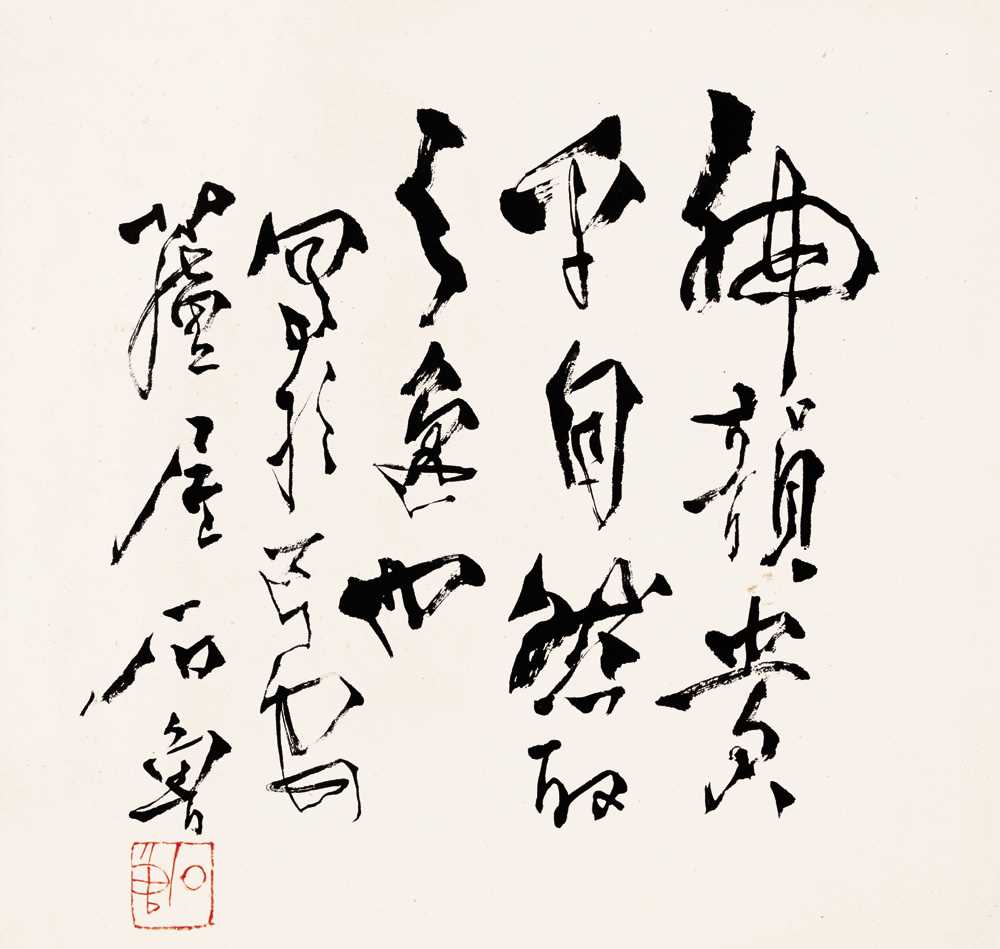 神韻貴
乎自然取
之逸也
寫於
屋石魯
石魯